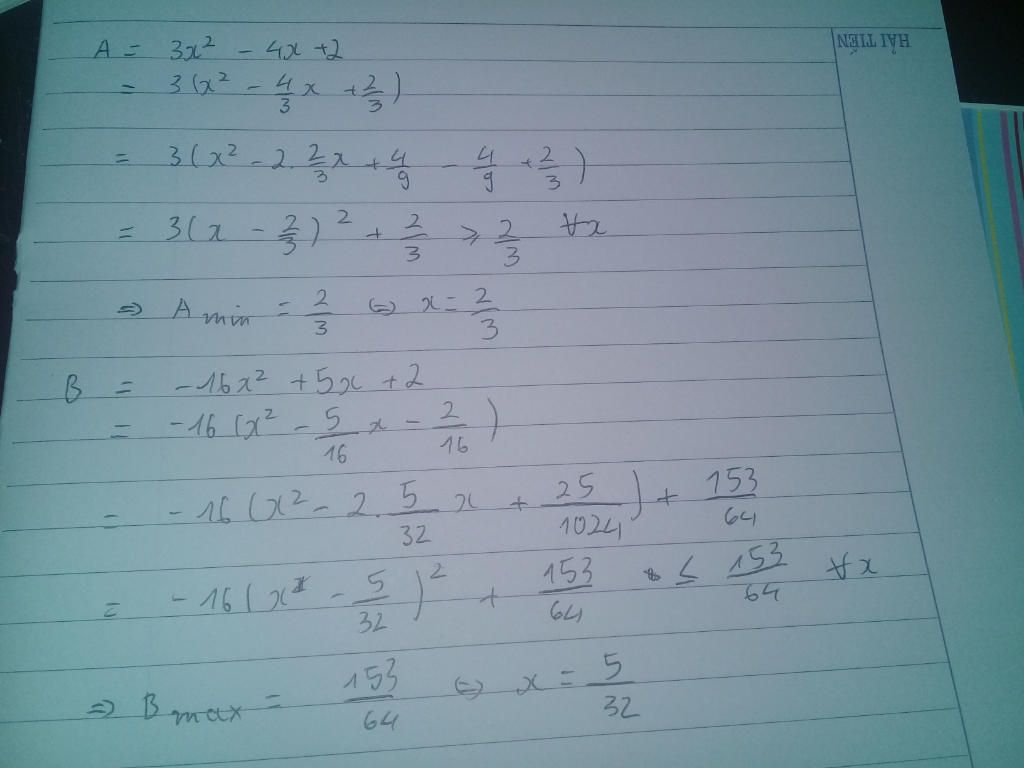 HẢI TIẾN
A = 3x² - 4x + 2
= 3(x² - 4/3 x + 2/3)
= 3(x² - 2. 2/3 x + 4/9 - 4/9 + 2/3)
= 3(x - 2/3)² + 2/3 ≥ 2/3 ∀x
⇒ A min = 2/3 ⇔ x = 2/3
B = -16x² + 5x + 2
= -16(x² - 5/16 x - 2/16)
= -16(x² - 2. 5/32 x + 25/1024) + 153/64
= -16(x - 5/32)² + 153/64 ≤ 153/64 ∀x
⇒ B max = 153/64 ⇔ x = 5/32